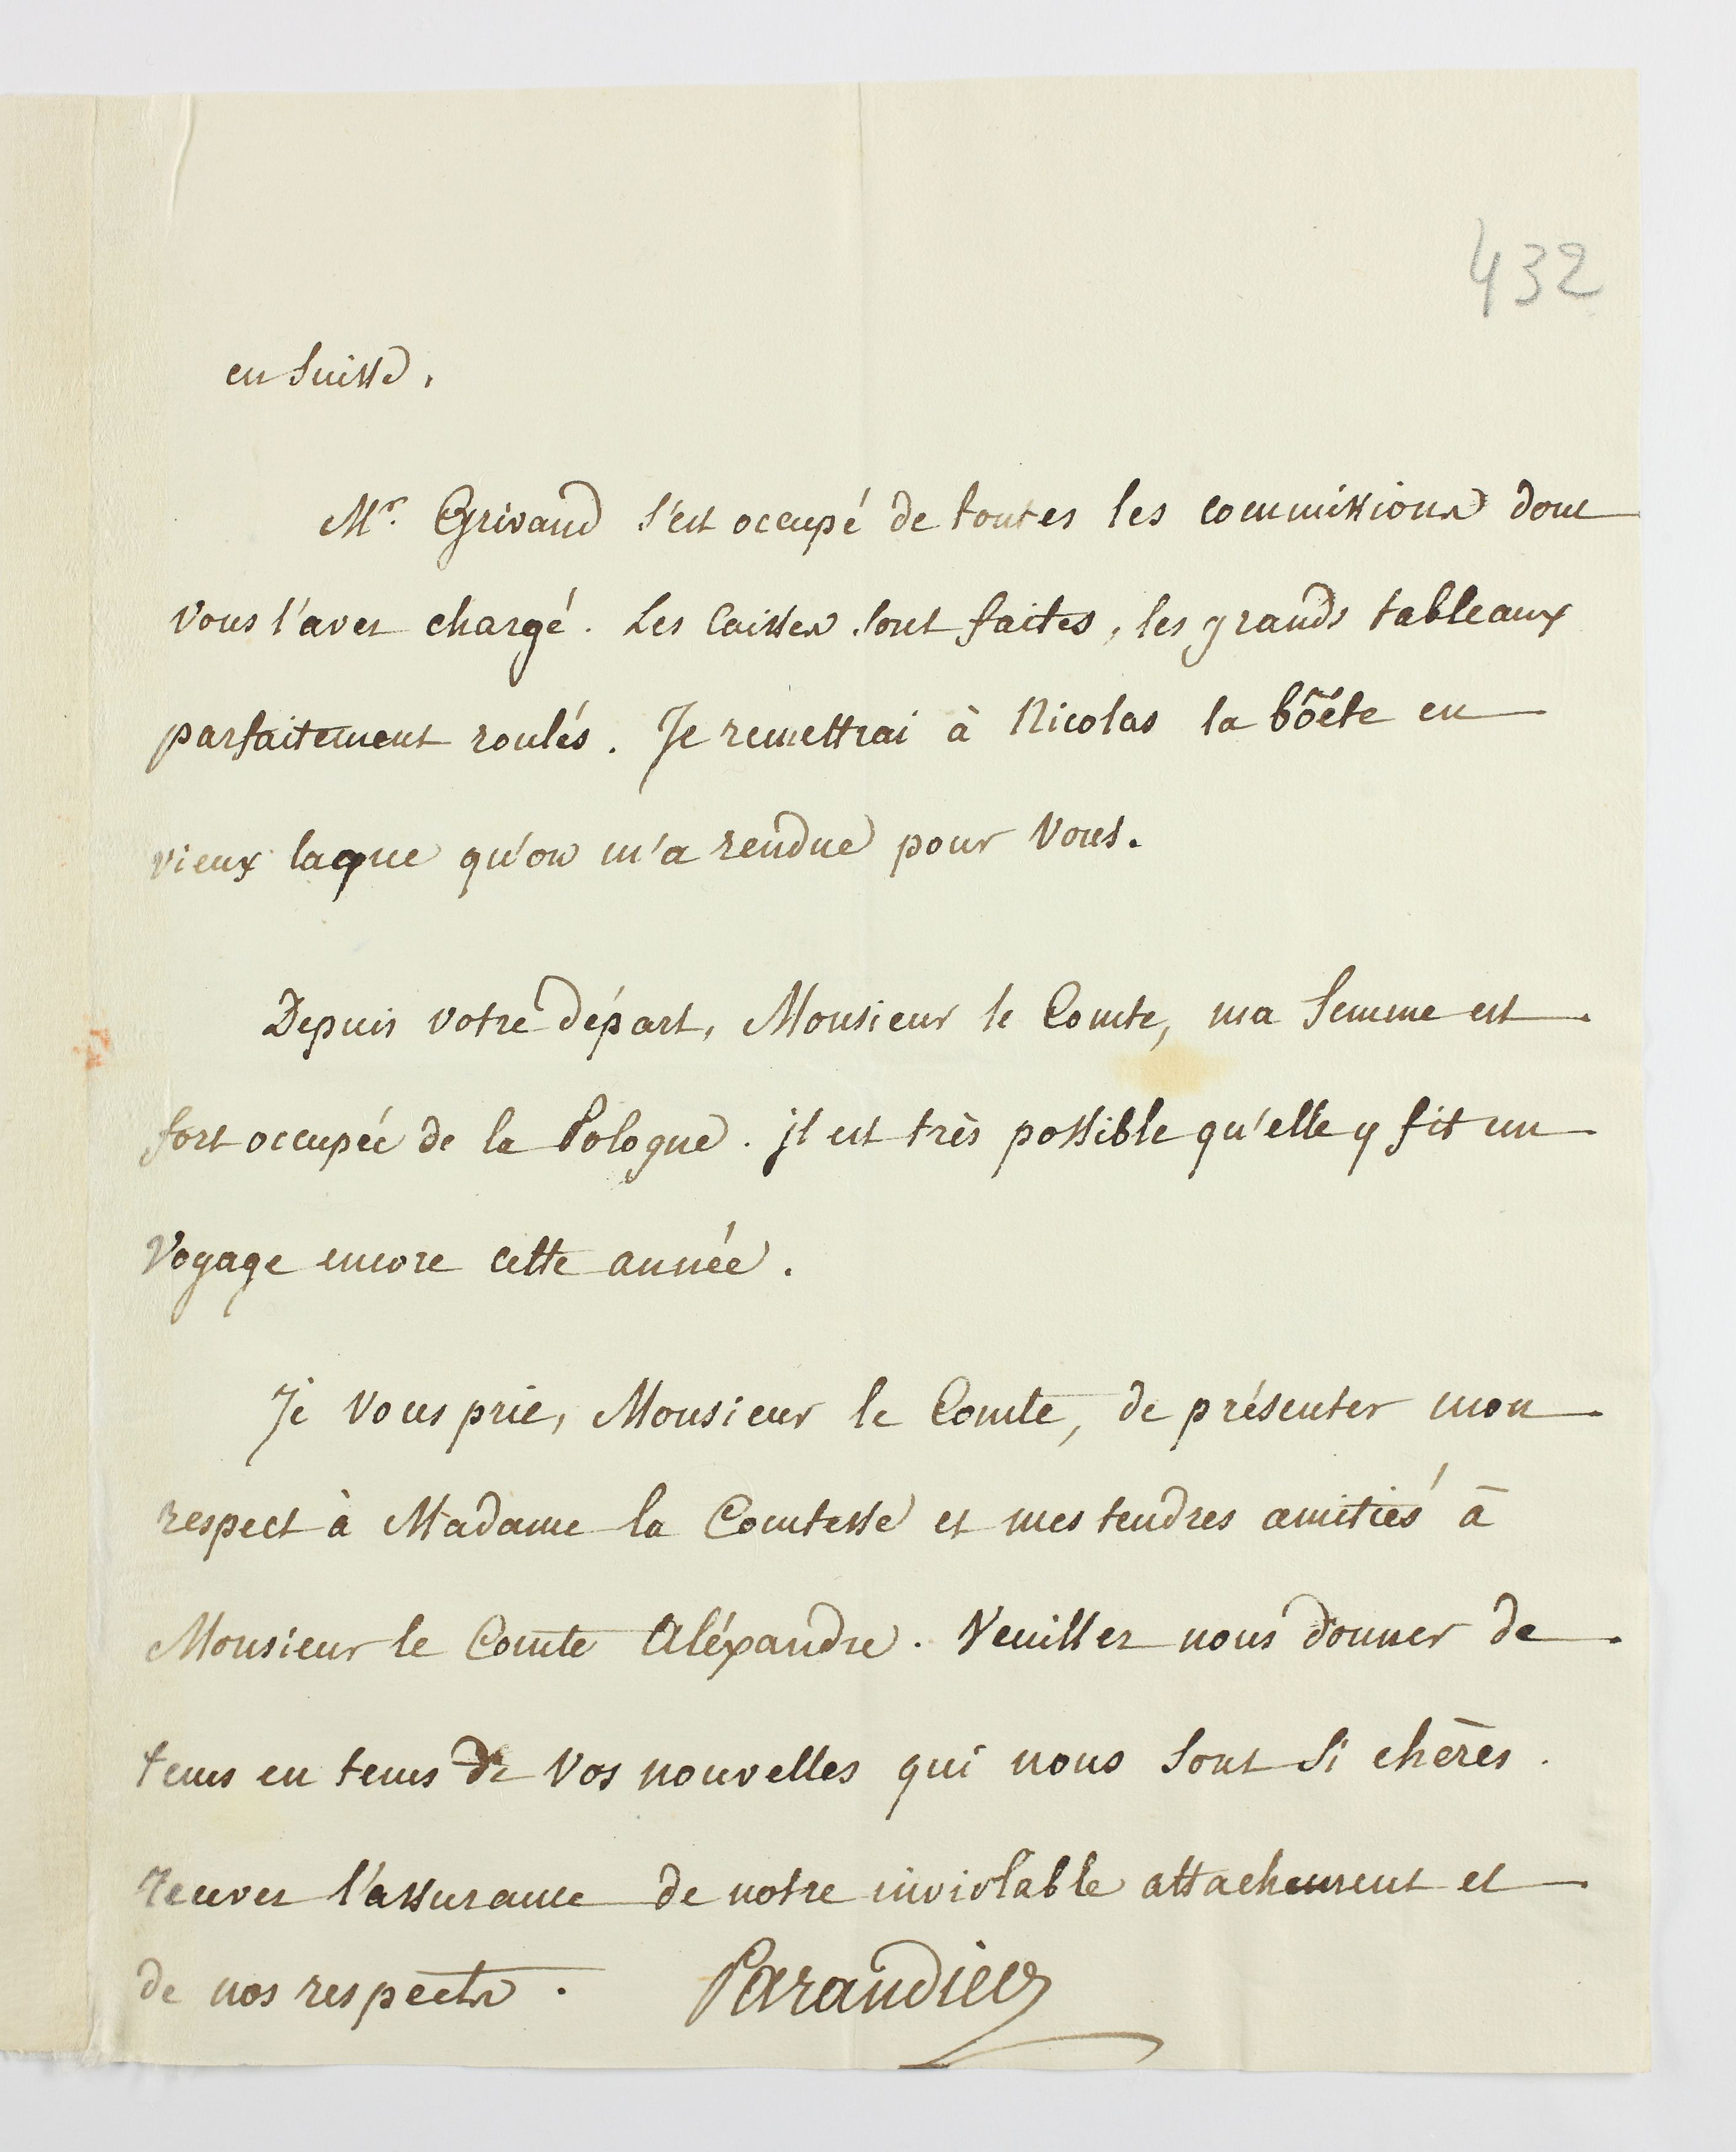 432
en Suisse.
Mr. Grivaud s'est occupé de toutes les commissions dont
vous l'avez chargé. Les Caisses sont faites, les grands tableaux
parfaitement roulés. Je remettrai à Nicolas la bôéte en
vieux laque qu'on m'a rendue pour Vous.
Depuis votre départ, Monsieur le Comte, ma femme est
fort occupée de la Pologne. jl est très possible qu'elle y fit un
Voyage encore cette année.
Je Vous prie, Monsieur le Comte, de présenter mon
respect à Madame la Comtesse et mes tendres amitiés à
Monsieur le Comte Aléxandre. Veuillez nous donner de
tems en tems de Vos nouvelles qui nous sont si chères.
recevez l'assurance de notre inviolable attachement et
de nos respects. Parandier